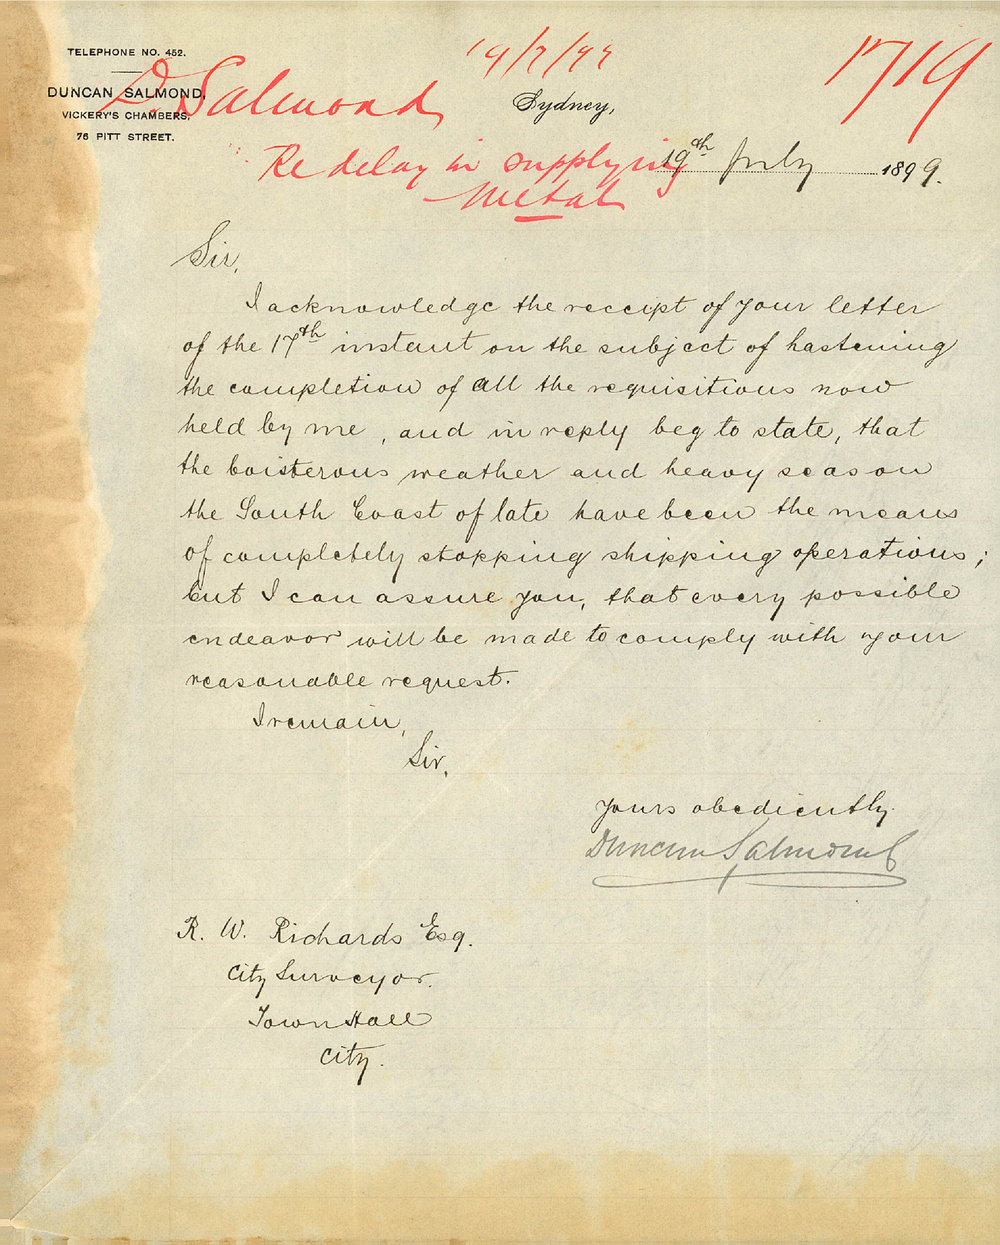 TELEPHONE NO. 452.
DUNCAN SALMOND,
VICKERY'S CHAMBERS,
76 PITT STREET.
19/7/99
1719
D. Salmond
Sydney,
Re delay in supplying
Metal
19th July 1899.
Sir,
I acknowledge the receipt of your letter
of the 17th instant on the subject of hastening
the completion of all the requisitions now
held by me, and in reply beg to state, that
the boisterous weather and heavy seas on
the South Coast of late have been the means
of completely stopping shipping operations;
but I can assure you, that every possible
endeavor will be made to comply with your
reasonable request.
I remain,
Sir,
Yours obediently.
Duncan Salmond
R. W. Richards Esq.
City Surveyor.
Town Hall
City.